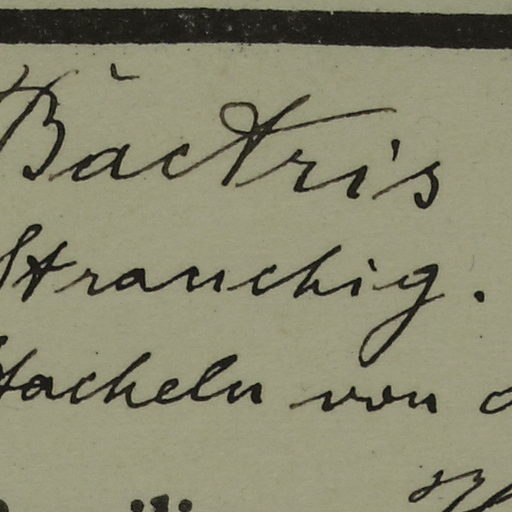 Bàctris
Strauchig.
Stacheln von